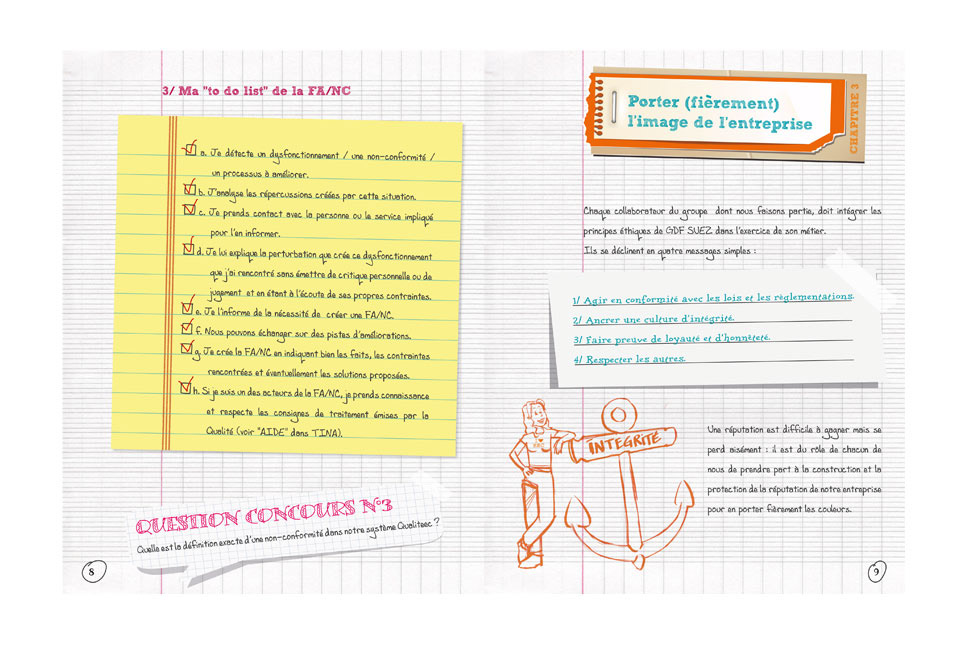 3/ Ma "to do list" de la FA/NC
a. Je détecte un dysfonctionnement / une non-conformité /
un processus à améliorer.
b. J'analyse les répercussions créées par cette situation.
c. Je prends contact avec la personne ou le service impliqué
pour l'en informer.
d. Je lui explique la perturbation que crée ce dysfonctionnement
que j'ai rencontré sans émettre de critique personnelle ou de
jugement et en étant à l'écoute de ses propres contraintes.
e. Je l'informe de la nécessité de créer une FA/NC.
f. Nous pouvons échanger sur des pistes d'améliorations.
g. Je crée la FA/NC en indiquant bien les faits, les contraintes
rencontrées et éventuellement les solutions proposées.
h. Si je suis un des acteurs de la FA/NC, je prends connaissance
et respecte les consignes de traitement émises par la
Qualité (voir "AIDE" dans TINA).
QUESTION CONCOURS N°3
Quelle est la définition exacte d'une non-conformité dans notre système Qualiteec ?
8
Porter (fièrement)
l'image de l'entreprise
CHAPITRE 3
Chaque collaborateur du groupe dont nous faisons partie, doit intégrer les
principes éthiques de GDF SUEZ dans l'exercice de son métier.
Ils se déclinent en quatre messages simples :
1/ Agir en conformité avec les lois et les règlementations.
2/ Ancrer une culture d'intégrité.
3/ Faire preuve de loyauté et d'honnêteté.
4/ Respecter les autres.
INTEGRITE
Une réputation est difficile à gagner mais se
perd aisément : il est du rôle de chacun de
nous de prendre part à la construction et la
protection de la réputation de notre entreprise
pour en porter fièrement les couleurs.
9